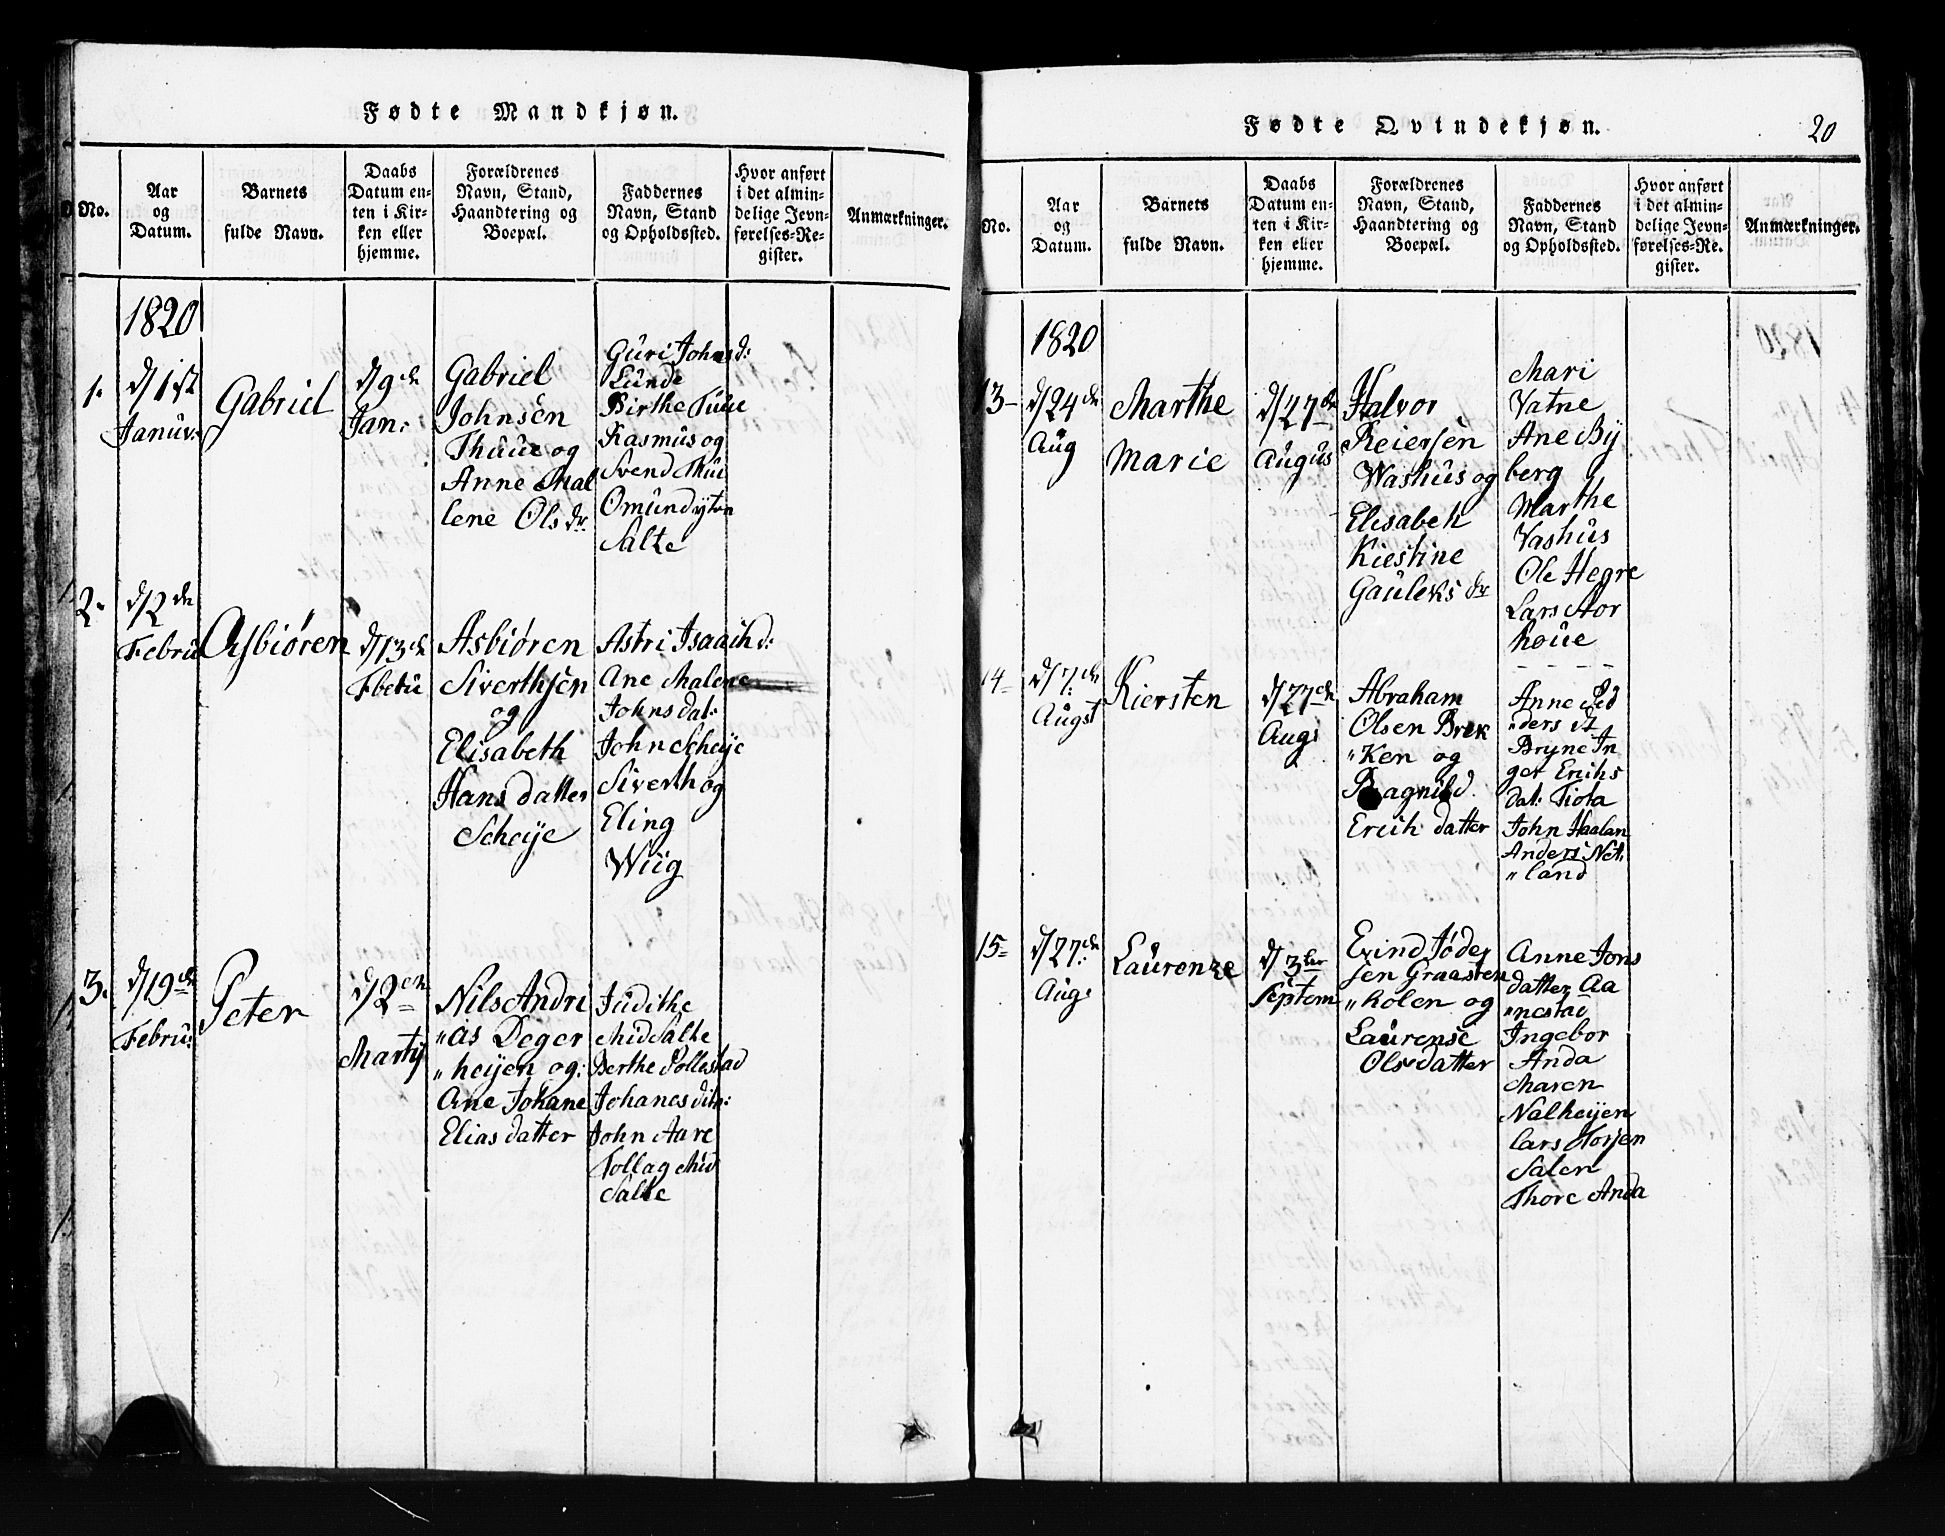 Fødte Mandkjøn.
No.
Aar
og
Datum.
Barnets
fulde Navn.
Daabs
Datum en-
ten i Kir-
ken eller
hjemme.
Forældrenes
Navn, Stand,
Haandtering og
Boepæl.
Faddernes
Navn, Stand
og Opholdssted.
Hvor anført
i det almin-
delige Jevn-
førelses-Re-
gister.
Anmærkninger.
1820
1.
d/1st
Januv:
Gabriel
d/9de
Jan:
Gabriel
Johnsen
Thüüe og
Anne Mal
lene Ols dr
Guri Johns d:
Lünde
Birthe Tüüe
Rasmüs og
Svend Thüü
Omünd ytre
Salte
2.
d/2de
Febru
Asbiören
d/13de
Fbeüe
Asbiören
Siverthsen
og
Elisabeth
Hans datter
Scheije
Astri Isaach d:
Ane Malene
Johns dat:
John Scheije
Siverth og
Eling
Wiig
3.
d/19de
Febru:
Peter
d/2en
Martij
Nils Andri
"as Deger
"heijen og:
Ane Johane
Elias datter
Judithe
Mid Salte
Berthe Follestad
Johanes dito:
John Aare
Tollag Mid
Salte
Fødte Qvindekjøn.
20
No.
Aar
og
Datum.
Barnets
fulde Navn.
Daabs
Datum en-
ten i Kir-
ken eller
hjemme.
Forældrenes
Navn, Stand,
Haandtering og
Boepæl.
Faddernes
Navn, Stand
og Opholdssted.
Hvor anført
i det almin-
delige Jevn-
førelses-Re-
gister.
Anmærkninger.
1820
13-
d/24de
Aug
Marthe
Marie
d/27de
Augus
Halvor
Reiersen
Washüs og
Elisabeh
Kiestine
Gauleks dr
Mari
Vatne
Ane By
berg
Marthe
Vashüs
Ole Hegre
Lars Aor
hoüe
14-
d/7:de
Augst
Kiersten
d/27de
Aug:
Abraham
Olsen Brek
"ken og
Ragnild
Erich datter
Anne Ped
"ders dt
Bryne In
ger Erichs
dat: Tiota
John Haalan
Anders Net:
"land
15-
d/27:de
Aug:
Laurenze
d/3ber
Septem
Erind Föder
sen Graasten
"kolen og
Laürense
Ols datter
Anne Jons
datter Aa
"nestad
Ingebor
Anda
Maren
Nalheijen
Lars Horsen
Salen
Thore Anda